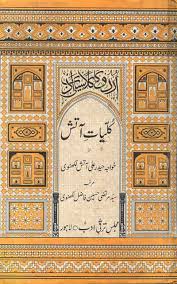 اردو کا کلاسیکی ادب
کلیات آتش
خواجہ حیدر علی آتش لکھنوی
مرتبہ
سید مرتضیٰ حسین فاضل لکھنوی
مجلس ترقی ادب لاہور